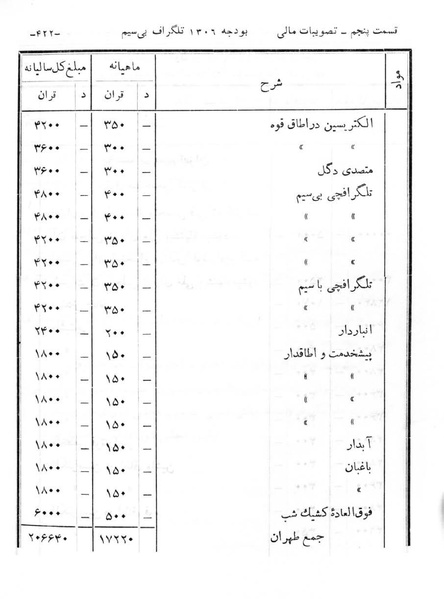 قسمت پنجم ـ تصویبات مالی بودجه ۱۳۰۶ تلگراف بی‌سیم -۴۲۲-
مواد شرح ماهیانه مبلغ کل سالیانه
قران د قران د
الکتریسین در اطاق قوه ۳۵۰ — ۴۲۰۰ —
» » ۳۰۰ — ۳۶۰۰ —
متصدی دگل ۳۰۰ — ۳۶۰۰ —
تلگرافچی بی‌سیم ۴۰۰ — ۴۸۰۰ —
» » ۴۰۰ — ۴۸۰۰ —
» » ۳۵۰ — ۴۲۰۰ —
» » ۳۵۰ — ۴۲۰۰ —
تلگرافچی باسیم ۳۵۰ — ۴۲۰۰ —
» » ۳۵۰ — ۴۲۰۰ —
انباردار ۲۰۰ — ۲۴۰۰ —
پیشخدمت و اطاقدار ۱۵۰ — ۱۸۰۰ —
» » ۱۵۰ — ۱۸۰۰ —
» » ۱۵۰ — ۱۸۰۰ —
» » ۱۵۰ — ۱۸۰۰ —
آبدار ۱۵۰ — ۱۸۰۰ —
باغبان ۱۵۰ — ۱۸۰۰ —
» ۱۵۰ — ۱۸۰۰ —
فوق‌العادهٔ کشیک شب ۵۰۰ — ۶۰۰۰ —
جمع طهران ۱۷۲۲۰ ۲۰۶۶۴۰